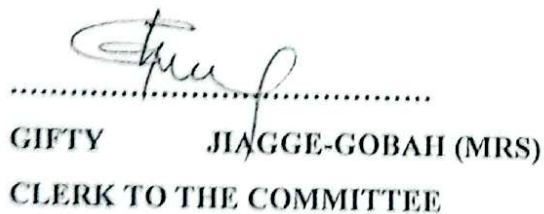 GIFTY JIAGGE-GOBAH (MRS)
CLERK TO THE COMMITTEE